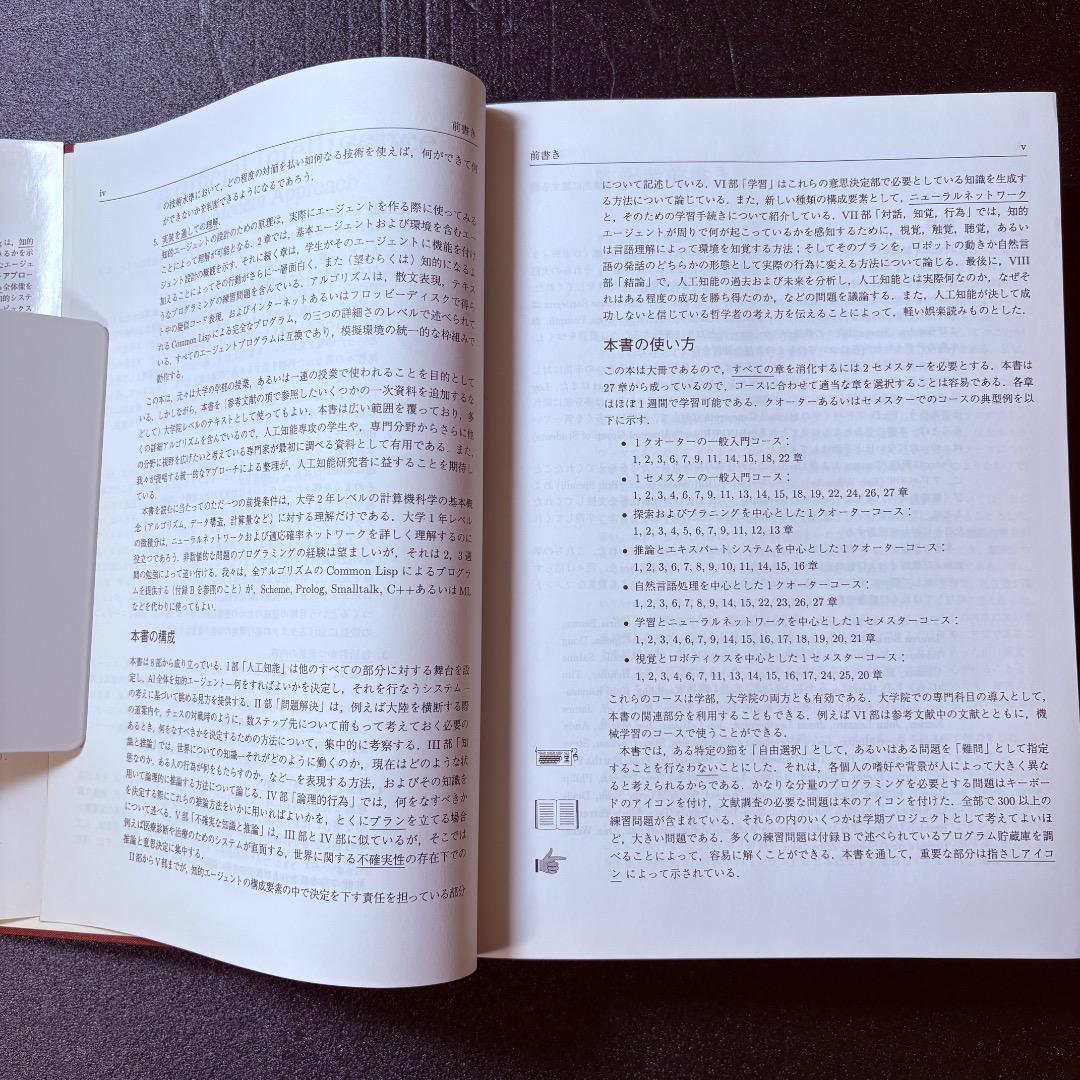 前書き
iv
の技術水準において，どの程度の対価を払い如何なる技術を使えば，何ができて何
ができないかを判断できるようになるであろう．
5. 実装を通しての理解．
知的エージェントの設計のための原理は，実際にエージェントを作る際に使ってみる
ことによって理解が可能となる．2章では，基本エージェントおよび環境を含むエー
ジェント設計の概観を示す．それに続く章は，学生がそのエージェントに機能を付け
加えることによってその行動がさらに一層面白く，また（望むらくは）知的になるよ
うなプログラミングの練習問題を含んでいる．アルゴリズムは，散文表現，テキス
ト中の疑似コード表現，およびインターネットあるいはフロッピーディスクで得ら
れる Common Lisp による完全なプログラム，の三つの詳細さのレベルで述べられて
いる．すべてのエージェントプログラムは互換であり，模擬環境の統一的な枠組みで
動作する．
この本は，元々は大学の学部の授業，あるいは一連の授業で使われることを目的として
いる．しかしながら，本書を（参考文献の項で参照したいくつかの一次資料を追加するな
どして）大学院レベルのテキストとして使ってもよい．本書は広い範囲を覆っており，多
くの詳細アルゴリズムを含んでいるので，人工知能専攻の学生や，専門分野からさらに他
の分野に視野を広げたいと考えている専門家が最初に調べる資料として有用である．また，
我々が提唱する統一的なアプローチによる整理が，人工知能研究者に益することを期待し
ている．
本書を読むに当たってのただ一つの前提条件は，大学2年レベルの計算機科学の基本概
念（アルゴリズム，データ構造，計算量など）に対する理解だけである．大学1年レベル
の微積分は，ニューラルネットワークおよび適応確率ネットワークを詳しく理解するのに
役立つであろう．非数値的な問題のプログラミングの経験は望ましいが，それは2, 3週
間の勉強によって追い付ける．我々は，全アルゴリズムの Common Lisp によるプログラ
ムを提供する（付録Bを参照のこと）が，Scheme, Prolog, Smalltalk, C++あるいはML
などを代わりに使ってもよい．
本書の構成
本書は8部から成り立っている．I部「人工知能」は他のすべての部分に対する舞台を設
定し，AI全体を知的エージェント—何をすればよいかを決定し，それを行なうシステム—
の考えに基づいて眺める見方を提供する．II部「問題解決」は，例えば大陸を横断する際
の道案内や，チェスの対戦時のように，数ステップ先について前もって考えておく必要の
あるとき，何をなすべきかを決定するための方法について，集中的に考察する．III部「知
識と推論」では，世界についての知識—それがどのように働くのか，現在はどのような状
態なのか，ある人の行為が何をもたらすのか，など—を表現する方法，およびその知識を
用いて論理的に推論する方法について論じる．IV部「論理的行為」では，何をなすべきか
を決定する際にこれらの推論方法をいかに用いればよいかを，とくにプランを立てる場合
について述べる．V部「不確実な知識と推論」は，III部とIV部に似ているが，そこでは
例えば医療診断や治療のためのシステムが直面する，世界に関する不確実性の存在下での
推論と意思決定に集中する．
II部からV部までが，知的エージェントの構成要素の中で決定を下す責任を担っている部分
前書き
v
について記述している．VI部「学習」はこれらの意思決定部で必要としている知識を生成す
る方法について論じている．また，新しい種類の構成要素として，ニューラルネットワーク
と，そのための学習手続きについて紹介している．VII部「対話，知覚，行為」では，知的
エージェントが周りで何が起こっているかを感知するために，視覚，触覚，聴覚，あるい
は言語理解によって環境を知覚する方法；そしてそのプランを，ロボットの動きか自然言
語の発話のどちらかの形態として実際の行為に変える方法について論じる．最後に，VIII
部「結論」で，人工知能の過去および未来を分析し，人工知能とは実際何なのか，なぜそ
れはある程度の成功を勝ち得たのか，などの問題を議論する．また，人工知能が決して成
功しないと信じている哲学者の考え方を伝えることによって，軽い娯楽読みものとした．
本書の使い方
この本は大冊であるので，すべての章を消化するには2セメスターを必要とする．本書は
27章から成っているので，コースに合わせて適当な章を選択することは容易である．各章
はほぼ1週間で学習可能である．クオーターあるいはセメスターでのコースの典型例を以
下に示す．
• 1クオーターの一般入門コース：
1, 2, 3, 6, 7, 9, 11, 14, 15, 18, 22 章
• 1セメスターの一般入門コース：
1, 2, 3, 4, 6, 7, 9, 11, 13, 14, 15, 18, 19, 22, 24, 26, 27 章
• 探索およびプラニングを中心とした1クオーターコース：
1, 2, 3, 4, 5, 6, 7, 9, 11, 12, 13 章
• 推論とエキスパートシステムを中心とした1クオーターコース：
1, 2, 3, 6, 7, 8, 9, 10, 11, 14, 15, 16 章
• 自然言語処理を中心とした1クオーターコース：
1, 2, 3, 6, 7, 8, 9, 14, 15, 22, 23, 26, 27 章
• 学習とニューラルネットワークを中心とした1セメスターコース：
1, 2, 3, 4, 6, 7, 9, 14, 15, 16, 17, 18, 19, 20, 21 章
• 視覚とロボティクスを中心とした1セメスターコース：
1, 2, 3, 4, 6, 7, 11, 13, 14, 15, 16, 17, 24, 25, 20 章
これらのコースは学部，大学院の両方とも有効である．大学院での専門科目の導入として，
本書の関連部分を利用することもできる．例えばVI部は参考文献中の文献とともに，機
械学習のコースで使うことができる．
本書では，ある特定の節を「自由選択」として，あるいはある問題を「難問」として指定
することを行なわないことにした．それは，各個人の嗜好や背景が人によって大きく異な
ると考えられるからである．かなりな分量のプログラミングを必要とする問題はキーボー
ドのアイコンを付け，文献調査の必要な問題は本のアイコンを付けた．全部で300以上の
練習問題が含まれている．それらの内のいくつかは学期プロジェクトとして考えてよいほ
ど，大きい問題である．多くの練習問題は付録Bで述べられているプログラム貯蔵庫を調
べることによって，容易に解くことができる．本書を通して，重要な部分は指さしアイコ
ンによって示されている．